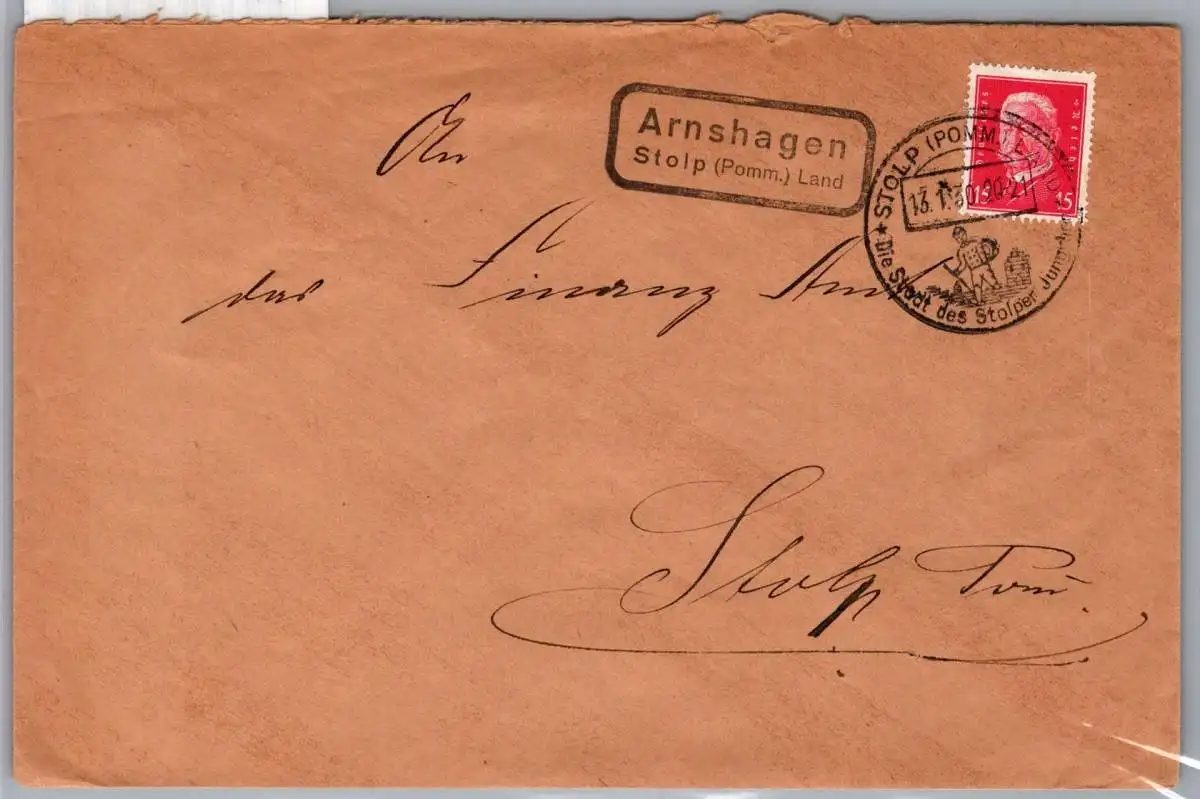 An
das Finanz Amt
Stolp Pom.
Arnshagen
Stolp (Pomm.) Land
STOLP (POMM.) LAND
13.1.30.20-21
* Die Stadt des Stolper Jung
15 15